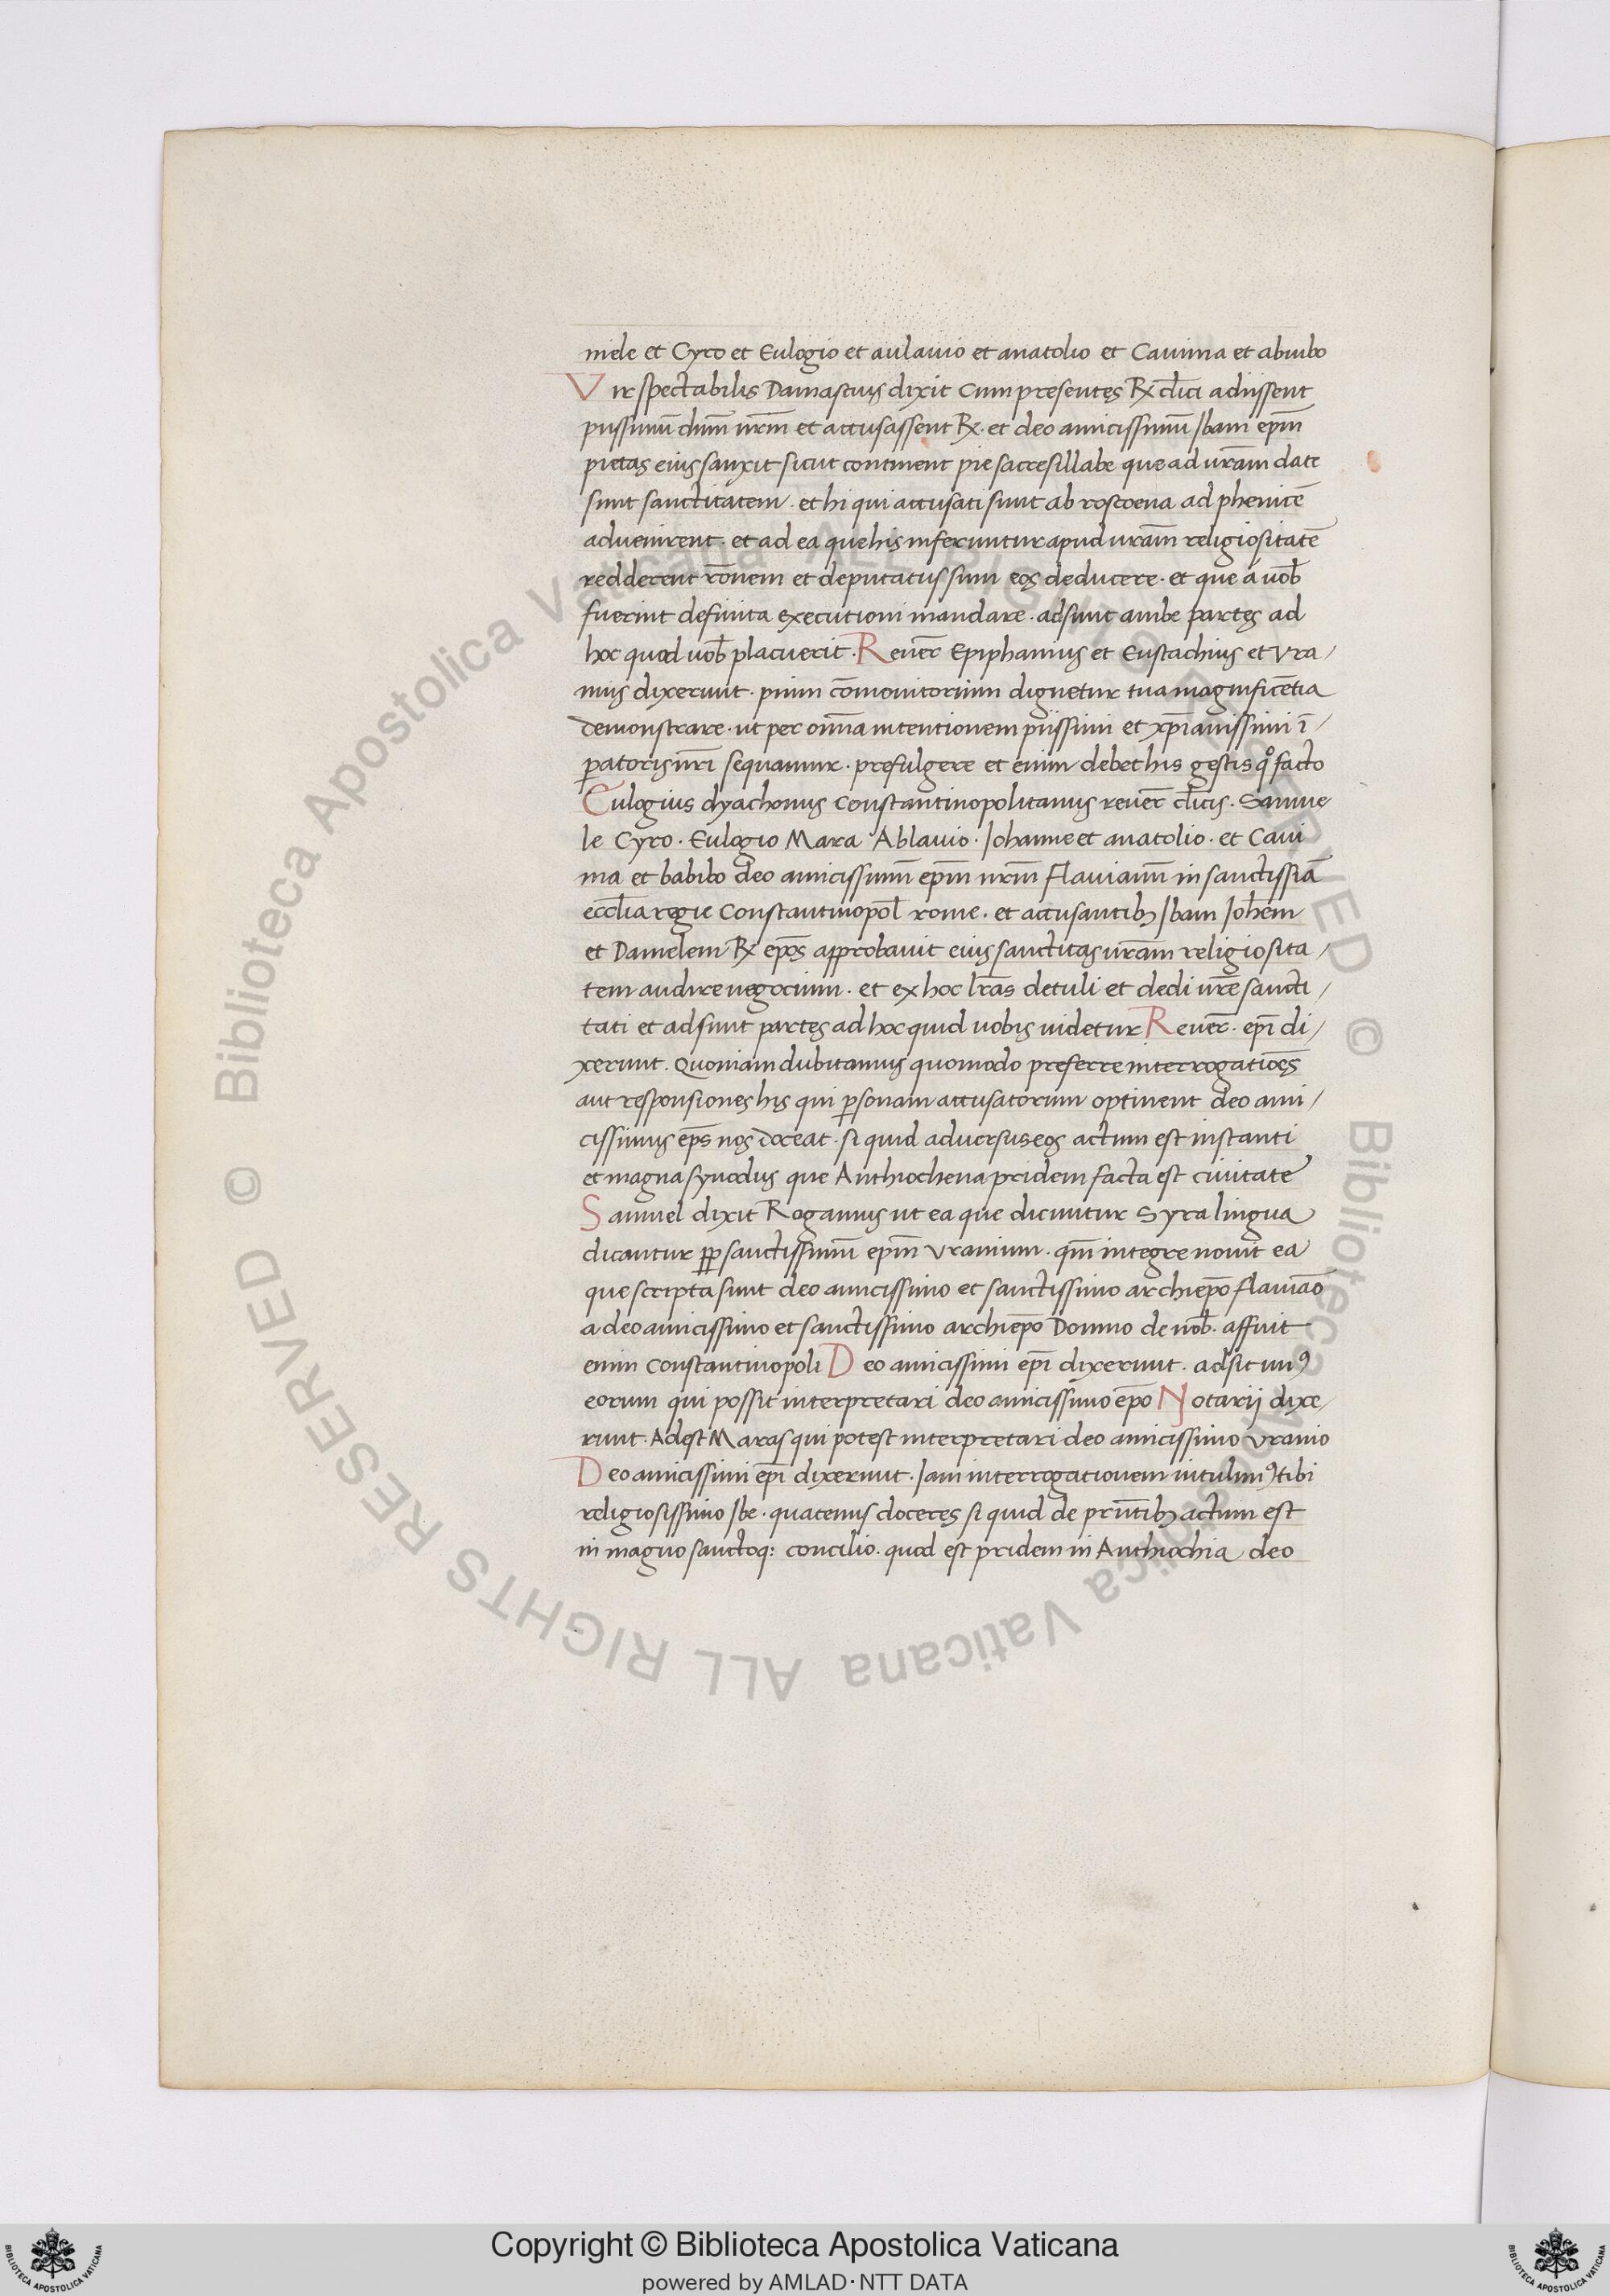 niele et Cyro et Eulogio et aulauio et anatolio et Cauma et abuibo
Vir spectabilis Damascius dixit Cum presentes R̃ cl̃ici adiissent
piissimũ dñm nr̃m et accusassent R̃. et deo amicissimũ Ibam ep̃m
pietas eius sanxit sicut continent pie sacre sillabe que ad ur̃am date
sunt sanctitatem . et hi qui accusati sunt ab roscoena ad phenicẽ
aduenirent . et ad ea que his inferuntur apud ur̃am religiositatẽ
redderent rõnem et deputatus sum eos deducere . et que a uob̃
fuerint definita executioni mandare . adsunt ambe partes ad
hoc quod uob̃ placuerit . Reuer̃ Epiphanius et Eustachius et Vra/
nius dixerunt . pium cõmonitorium dignetur tua magnificẽtia
demonstrare . ut per om̃ia intentionem piissimi et xp̃ianissimi ĩ/
ꝑatoris nr̃i sequamur . prefulgere et enim debet his gestis qͦ facto
Eulogius dyachonus Constantinopolitanus reuer̃ cl̃icis . Samue
le Cyro . Eulogio Mara Ablauio . Iohanne et anatolio . et Caui
ma et babibo deo amicissimũ ep̃m nr̃m Flauianũ in sanctissĩa
eccl̃ia regie Constantinopol̃ rome . et accusantibꝫ Ibam Ioh̃em
et Danielem R̃ ep̃os approbauit eius sanctitas ur̃am religiosita/
tem audire negocium . et ex hoc lr̃as detuli et dedi ur̃e sancti/
tati et adsunt partes ad hoc quid uobis uidetur Reuer̃ . ep̃i di/
xerunt . Quoniam dubitamus quomodo preferre interrogatiões
aut responsiones his qui ꝑsonam accusatorum optinent deo ami/
cissimus ep̃s nos doceat . si quid aduersus eos actum est in sancti
et magna synodus que Anthiochena pridem facta est ciuitate
Samuel dixit Rogamus ut ea que dicuntur Syra lingua
dicantur ꝑꝑ sanctissimũ ep̃m Vranium . qm̃ integre nouit ea
que scripta sunt deo amicissimo et sanctissimo archiep̃o flauião
a deo amicissimo et sanctissimo archiep̃o Domno de nob̃ . affuit
enim Constantinopoli Deo amicissimi ep̃i dixerunt . adsit unꝰ
eorum qui possit interpretari deo amicissimo ep̃o Notarij dixe/
runt . Adest Maras qui potest interpretari deo amicissimo Vranio
Deo amicissimi ep̃i dixerunt . Iam interrogationem intulimꝰ tibi
religiosissimo Ibe . quatenus doceres si quid de prñtibꝫ actum est
in magno sanctoq: concilio . quod est pridem in Anthiochia deo
© Biblioteca Apostolica Vaticana ALL RIGHTS RESERVED © Biblioteca Apostolica Vaticana ALL RIGHTS RESERVED
Copyright © Biblioteca Apostolica Vaticana
powered by AMLAD·NTT DATA
BIBLIOTECA APOSTOLICA VATICANA
BIBLIOTECA APOSTOLICA VATICANA